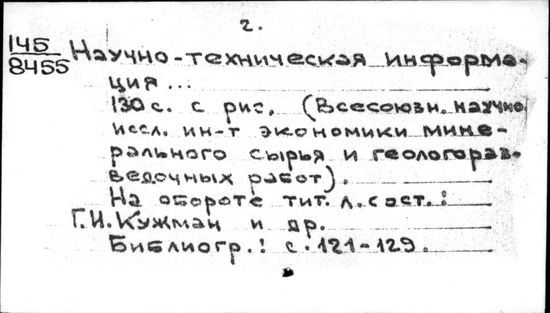 2.
145
8455
Научно-техническая информа-
ция...
130 с. с рис. (Всесоюзн. научно
иссл. ин-т экономики мине-
рального сырья и геологораз-
ведочных работ).
На обороте тит. л. сост.:
Г.И. Кужман и др.
Библиогр.: с. 121-129.